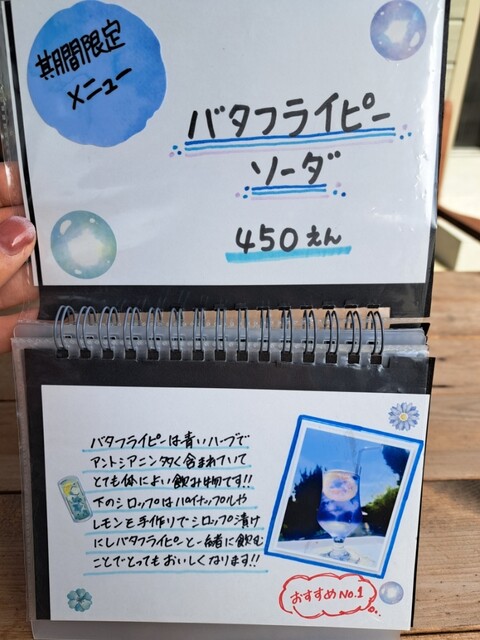 期間限定
メニュー
バタフライピー
ソーダ
450えん
バタフライピーは青いハーブで
アントシアニン多く含まれていて
とても体によい飲み物です!!
下のシロップはパイナップルや
レモンを手作りでシロップ漬け
にしバタフライピーと一緒に飲む
ことでとってもおいしくなります!!
おすすめNo.1